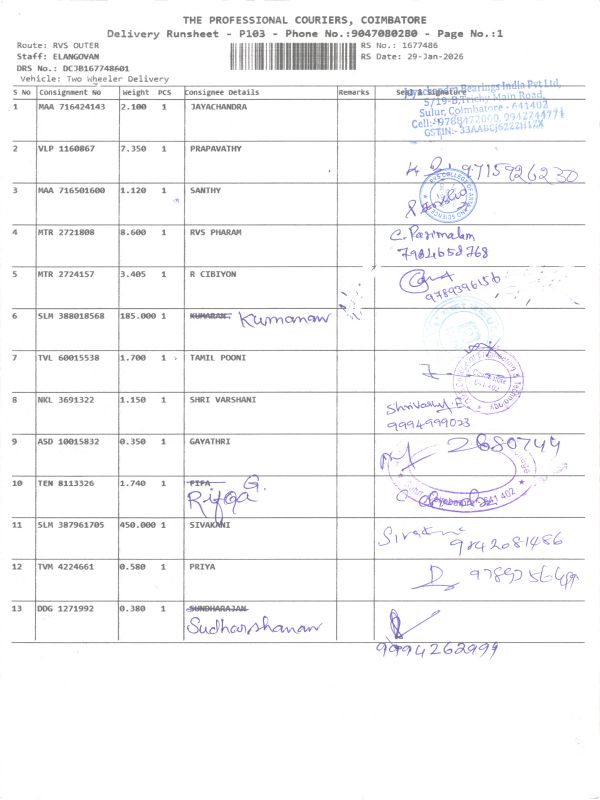 THE PROFESSIONAL COURIERS, COIMBATORE
Delivery Runsheet - P103 - Phone No.:9047080280 - Page No.:1
Route: RVS OUTER RS No.: 1677486
Staff: ELANGOVAN RS Date: 29-Jan-2026
DRS No.: DCJB167748601
Vehicle: Two Wheeler Delivery
S No Consignment No Weight PCS Consignee Details Remarks Seal & Signature
Jayachandra Bearings India Pvt Ltd,
5/19-B, Trichy Main Road,
Sulur, Coimbatore - 641402
Cell:- 9788472000, 9942744771
GSTIN:- 33AABCJ6222H1ZX
1 MAA 716424143 2.100 1 JAYACHANDRA
2 VLP 1160867 7.350 1 PRAPAVATHY
9715926230
3 MAA 716501600 1.120 1 SANTHY
RVS COLLEGE OF ARTS AND SCIENCE
4 MTR 2721808 8.600 1 RVS PHARAM C. Parimalam
7984658768
5 MTR 2724157 3.405 1 R CIBIYON
9789396156
6 SLM 388018568 185.000 1 KUMARAN. Kumanan
7 TVL 60015538 1.700 1 TAMIL POONI
8 NKL 3691322 1.150 1 SHRI VARSHANI
9994999023
9 ASD 10015832 0.350 1 GAYATHRI 2680744
10 TEN 8113326 1.740 1 PIFA G.
Rifqa
11 SLM 387961705 450.000 1 SIVAKANI
9842081486
12 TVM 4224661 0.580 1 PRIYA
13 DDG 1271992 0.380 1 SUNDHARAJAN
Sudharshanan
9994262999